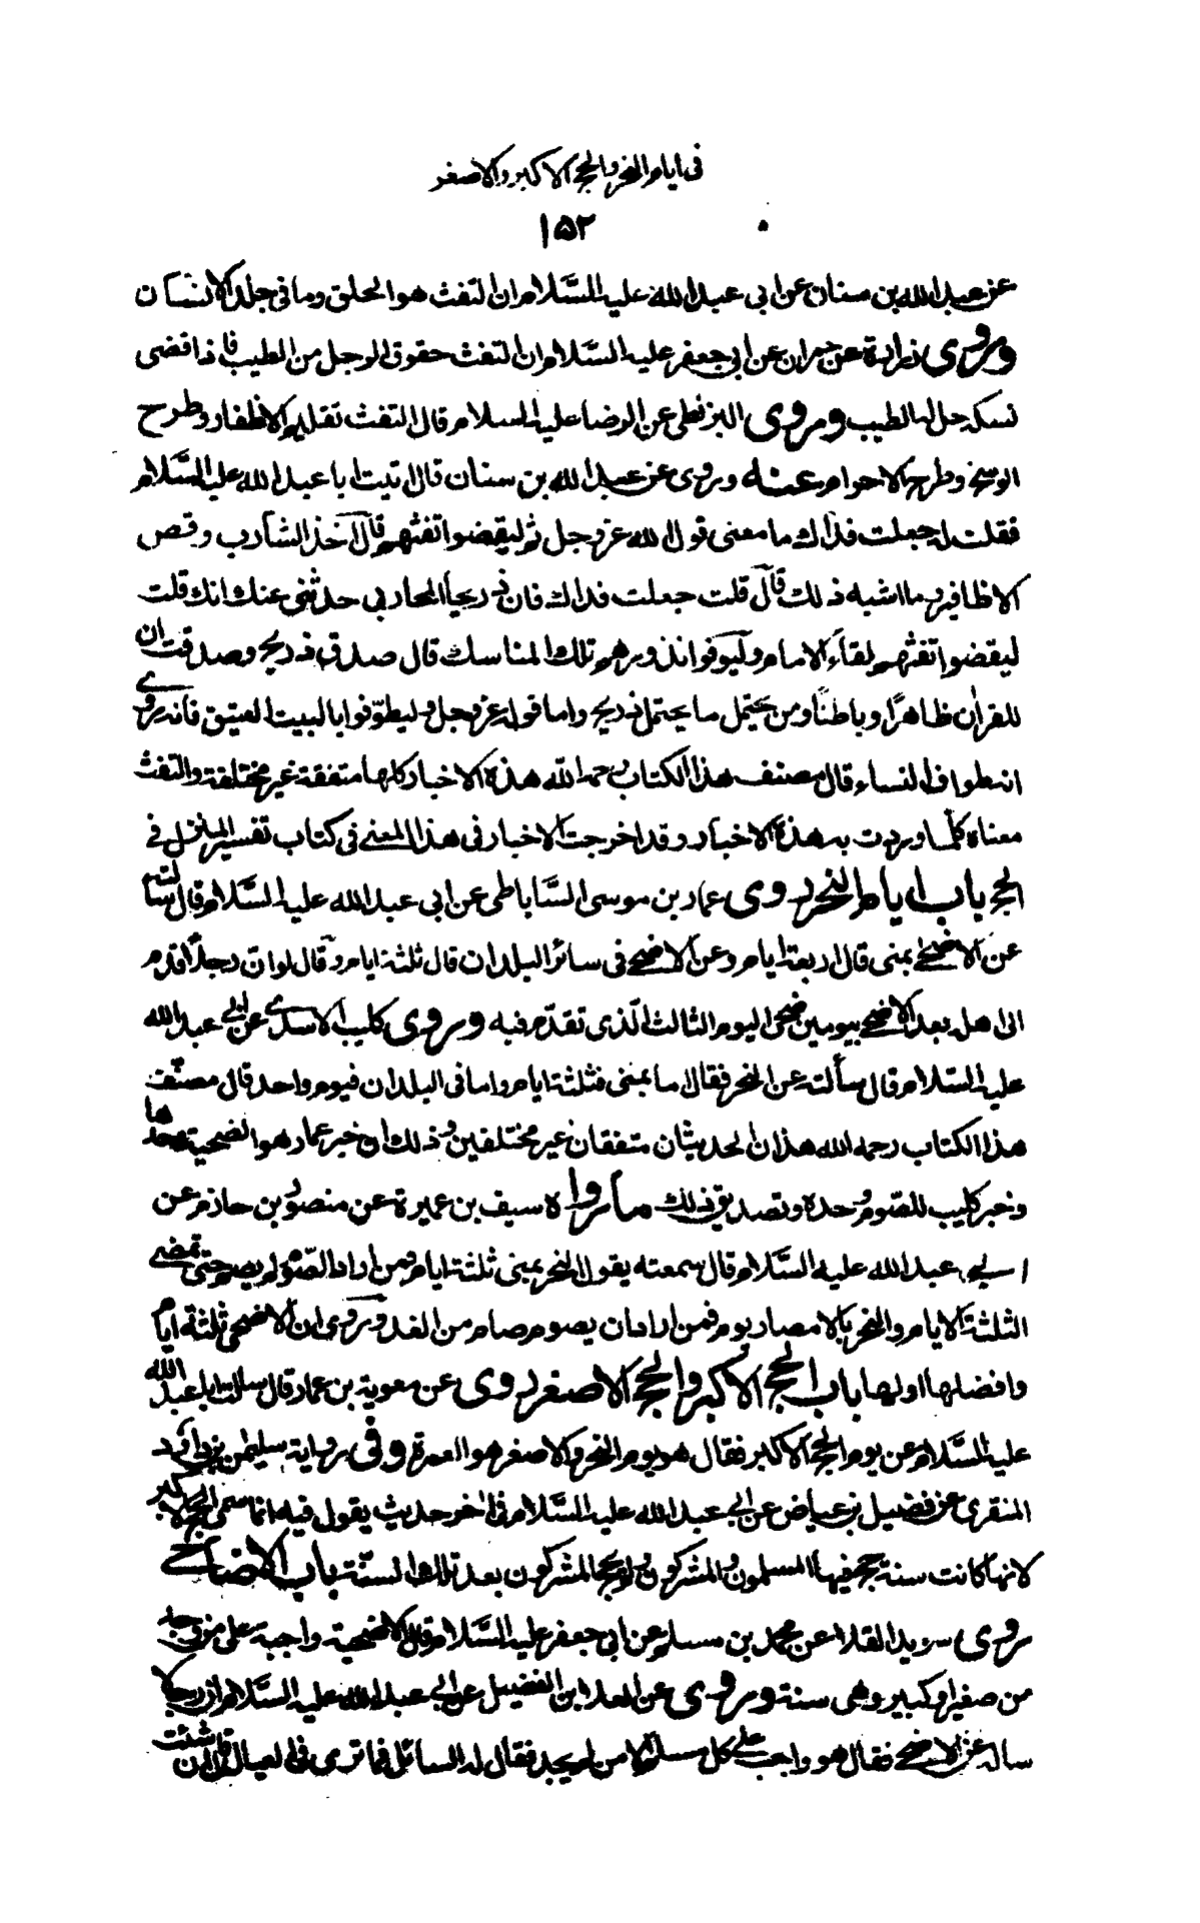 فى ايام النحر والحج الاكبر والاصغر
١۵٢
عن عبد الله بن سنان عن ابى عبد الله عليه السَّلام ان التفث هو الحلق وما فى جلد الانسان
وروى زرارة عن حمران عن ابى جعفر عليه السَّلام ان التفث حقوق الرجل من الطيب فاذا قضى
نسكه حل له الطيب وروى البزنطى عن الرضا عليه السلام قال التفث تقليم الاظفار وطرح
الوسخ وطرح الاحرام عنه وروى عن عبد الله بن سنان قال اتيت ابا عبد الله عليه السَّلام
فقلت له جعلت فداك ما معنى قول الله عز وجل ثم ليقضوا تفثهم قال اخذ الشارب وقص
الاظافير وما اشبه ذلك قال قلت جعلت فداك فان ذريحا المحاربى حدثنى عنك انك قلت
ليقضوا تفثهم لقاء الامام وليوفوا نذورهم تلك المناسك قال صدق ذريح وصدقت ان
للقران ظاهرًا وباطنًا ومن يحتمل ما يحتمل ذريح واما قوله عز وجل وليطوّفوا بالبيت العتيق فانه روى
انه طواف النساء قال مصنف هذا الكتاب رحمه الله هذه الاخبار كلها متفقة غير مختلفة والتفث
معناه كلما وردت به هذة الاخبار وقد اخرجت الاخبار فى هذا المعنى فى كتاب تفسير المنزل فى
الحج باب ايام النحر روى عمار بن موسى السَّاباطى عن ابى عبد الله عليه السَّلام قال سالته
عن الاضحى بمنى قال اربعة ايام وعن الاضحى فى سائر البلدان قال ثلثة ايام وقال لو ان رجلًا قدم
الى اهله بعد الاضحى بيومين ضحى اليوم الثالث الّذى تقدّم فيه وروى كليب الاسدى عن ابى عبد الله
عليه السَّلام قال سألته عن النحر فقال اما بمنى فثلثة ايام واما فى البلدان فيوم واحد قال مصنّف
هذا الكتاب رحمه الله هذان الحديثان متفقان غير مختلفين وذلك ان خبر عمار هو الضحية وحدها
وخبر كليب للصّوم وحده وتصديق ذلك ما رواه سيف بن عميرة عن منصور بن حازم عن
ابى عبد الله عليه السَّلام قال سمعته يقول النحر بمنى ثلثة ايام فمن اراد الصّوم لم يصم حتى تمضى
الثلثة الايام والنحر بالامصار يوم فمن اراد ان يصوم صام من الغد وروى ان الاضحى ثلثة ايام
وافضلها اولها باب الحج الاكبر والحج الاصغر روى عن معوية بن عمار قال سالت ابا عبد الله
عليه السَّلام عن يوم الحج الاكبر فقال هو يوم النحر والاصغر هو العمرة وفى رواية سليمن بن داود
المنقرى عن فضيل بن عياض عن ابى عبد الله عليه السَّلام فى اخر حديث يقول فيه انما سمى الحج الاكبر
لانها كانت سنة حج فيها المسلمون والمشركون ولم يحج المشركون بعد تلك السنّة باب الاضاحى
روى سويد القلا عن محمد بن مسلم عن ابى جعفر عليه السَّلام قال الاضحية واجبة على من وجد
من صغير او كبير وهى سنة وروى عن العلا بن الفضيل عن ابى عبد الله عليه السَّلام ان رجلا
ساله عن الاضحى فقال هو واجب على كل مسلم الا من لم يجد فقال له السائل فما ترى فى العيال قال ان شئت